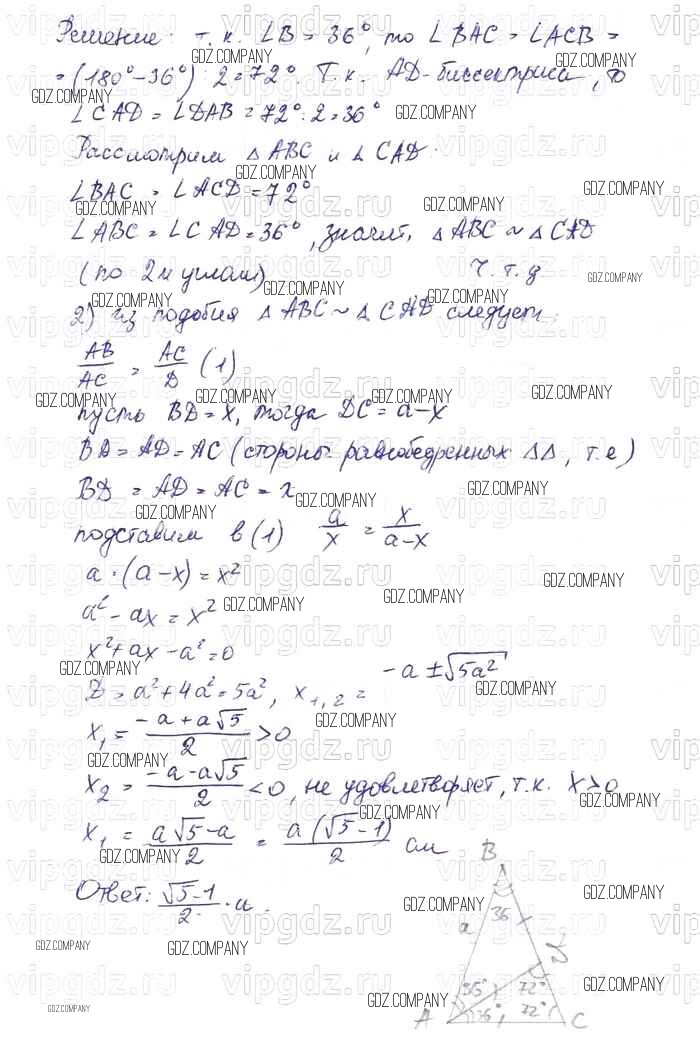 Решение: т.к. ∠B = 36°, то ∠BAC = ∠ACB =
= (180° - 36°) : 2 = 72°. Т.к. AD - биссектриса, то
∠CAD = ∠DAB = 72° : 2 = 36°
Рассмотрим △ABC и △CAD.
∠BAC = ∠ACD = 72°
∠ABC = ∠CAD = 36°, значит, △ABC ~ △CAD
(по 2м углам) ч.т.д
2) из подобия △ABC ~ △CAD следует:
AB/AC = AC/D (1)
пусть BD = x, тогда DC = a - x
BD = AD = AC (стороны равнобедренных △△, т.е)
BD = AD = AC = x
подставим в (1) a/x = x/(a-x)
a·(a-x) = x²
a² - ax = x²
x² + ax - a² = 0
D = a² + 4a² = 5a², x₁,₂ = -a ± √5a²
x₁ = (-a + a√5)/2 > 0
x₂ = (-a - a√5)/2 < 0, не удовлетворяет, т.к. x > 0
x₁ = (a√5 - a)/2 = a(√5 - 1)/2 см
Ответ: (√5-1)/2 · a.
B
36°
a
D
36° 72°
A 36° 72° C
GDZ.COMPANY
vipgdz.ru